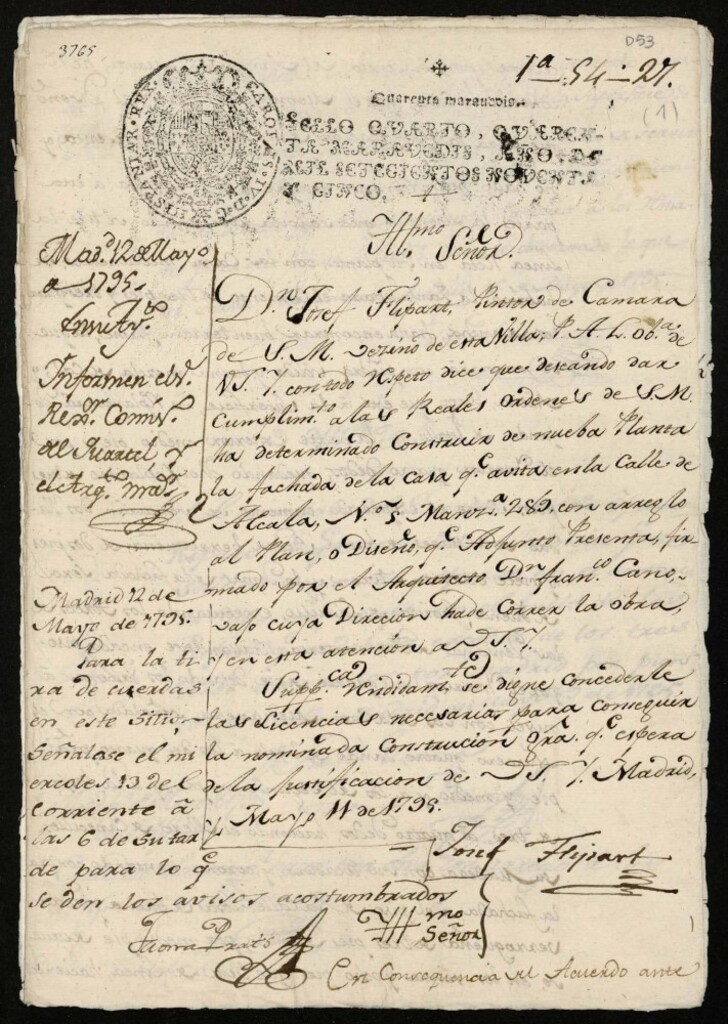 3765
D53
1ª 54-27.
(1)
CAROLUS IV D G HISPANIAR REX
Quarenta marauedis.
SELLO QVARTO, QVAREN-
TA MARAVEDIS, AÑO DE
MIL SETECIENTOS NOVENTA
Y CINCO.
Yll.mo Señor.
Mad.d 12 de Mayo
a 1795.
En su Ay.to
Informen el S.
Rex.or Comis.
del Quartel y
el Arq.to mayor
D.n Josef Flipart, Pintor de Camara
de S. M. vezino de esta Villa, P. A. L. Ob.a de
V.S. Y. con todo respeto dice que deseando dar
Cumplim.to a las Reales ordenes de S. M.
ha determinado Construir de nueba Planta
la fachada de la Casa q.e avita en la Calle de
Alcala, N.o 5 Manz.a 289, con arreglo
al Plan, o Diseño, q.e Adjunto Presenta, fir-
mado por el Arquitecto D.n Fran.co Cano,
vajo cuya Direcion ha de Correr la obra,
y en esta atencion a V.S. Y.
Supp.ca rendidam.te se digne concederle
las Licencias necesarias para Conseguir
la nominada Construcion, gra. q.e espera
de la Justificacion de V.S. Y. Madrid,
y Mayo 11 de 1795.
Josef Flipart
Madrid 12 de
Mayo de 1795.
Para la ti
ra de cuerdas
en este sitio,
Señalase el mi
ercoles 13 del
corriente à
las 6 de su tar
de para lo q.e
se den los avisos acostumbrados
Prats
Yll.mo Señor
En Consequencia del Acuerdo ante